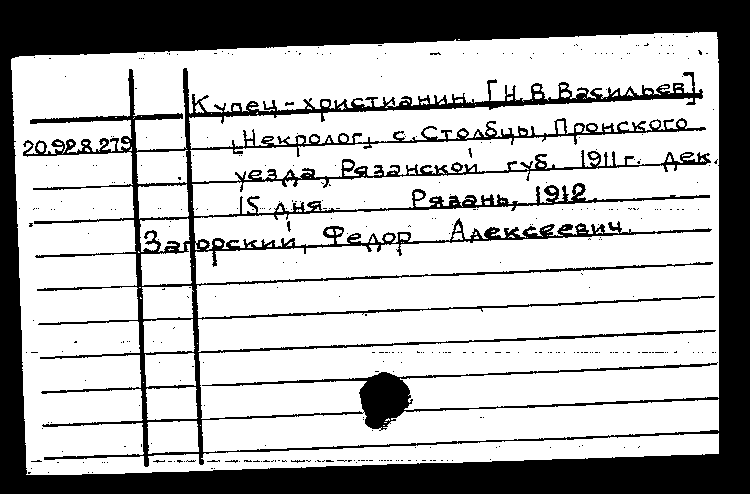 Купец-христианин. [Н.В.Васильев].
20.92.8.279
[Некролог] с. Столбцы, Пронского
уезда, Рязанской губ. 1911 г. дек.
15 дня. Рязань, 1912.
Загорский, Федор Алексеевич.